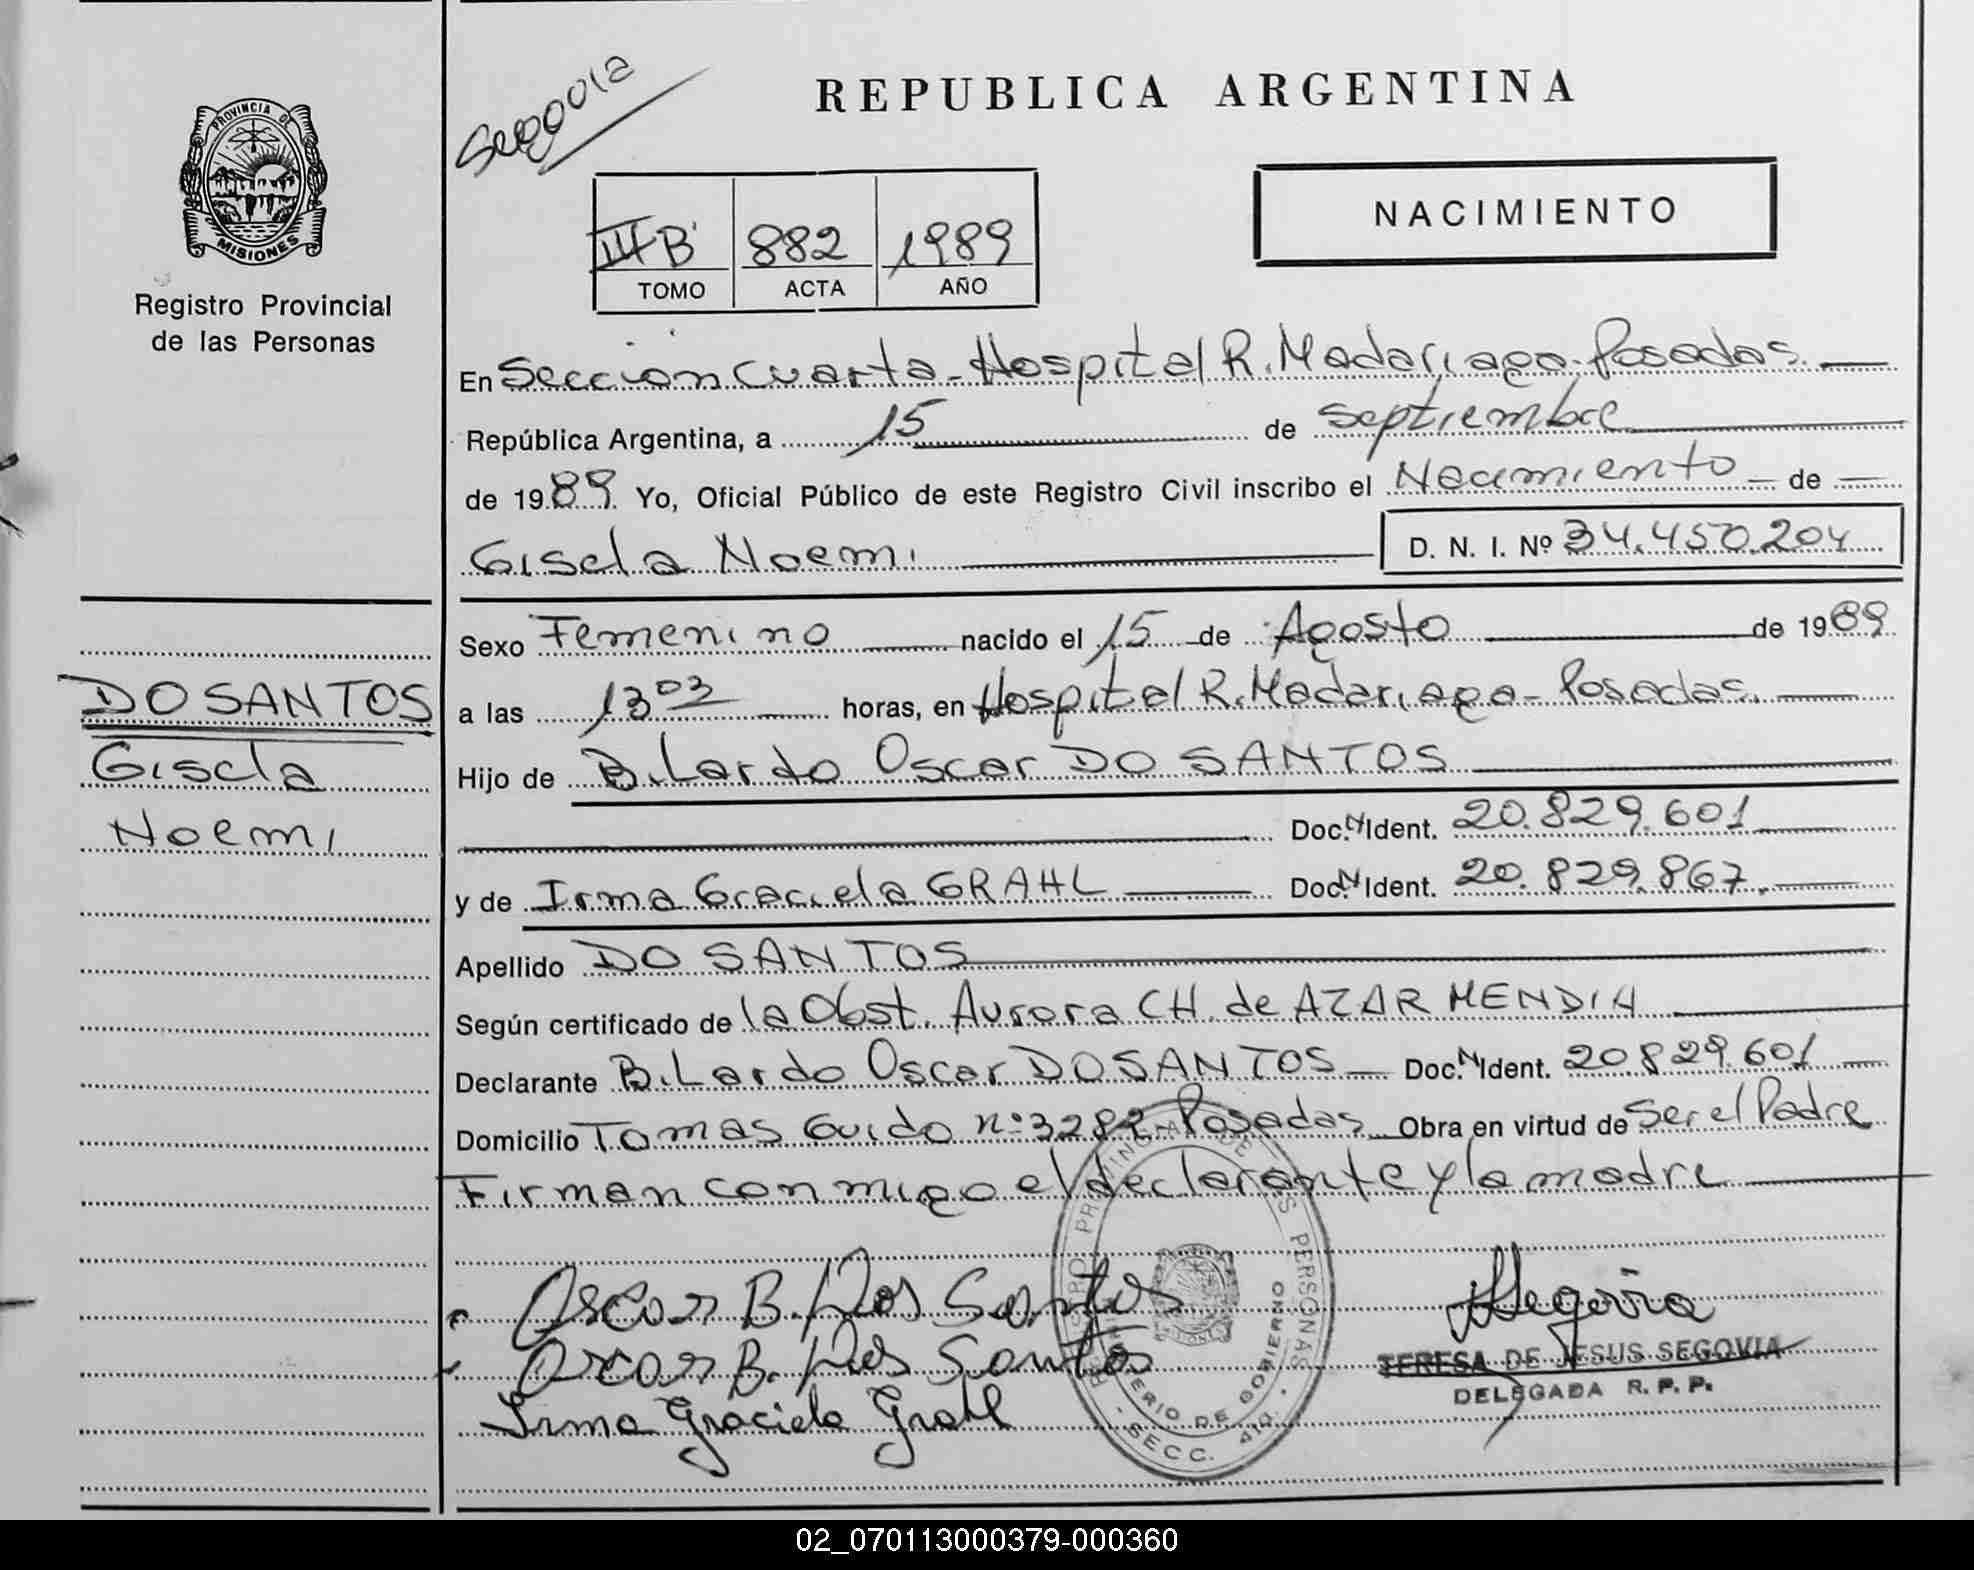 Segovia
REPUBLICA ARGENTINA
PROVINCIA DE
MISIONES
Registro Provincial
de las Personas
III B 882 1989
TOMO ACTA AÑO
NACIMIENTO
En Seccion Cuarta - Hospital R. Madariaga - Posadas.
República Argentina, a 15 de septiembre
de 1989. Yo, Oficial Público de este Registro Civil inscribo el Nacimiento de
Gisela Noemi D. N. I. Nº 34.450.204
Sexo Femenino nacido el 15 de Agosto de 1989
a las 13 03 horas, en Hospital R. Madariaga - Posadas.
Hijo de Bilardo Oscar DO SANTOS
Doc. N Ident. 20.829.601
y de Irma Graciela GRAHL Doc. N Ident. 20.829.867.
Apellido DO SANTOS
Según certificado de la Obst. Aurora CH. de AZAR MENDIA
Declarante Bilardo Oscar DO SANTOS Doc. N Ident. 20.829.601
Domicilio Tomas Guido nº 3282 - Posadas Obra en virtud de Ser el Padre
Firman conmigo el declarante y la madre
DO SANTOS
Gisela
Noemi
Oscar B. Dos Santos
Oscar B. Dos Santos
Irma Graciela Grahl
REGISTRO PROVINCIAL DE LAS PERSONAS
MINISTERIO DE GOBIERNO
SECC. 4ta.
Segovia
TERESA DE JESUS SEGOVIA
DELEGADA R. P. P.
02_070113000379-000360